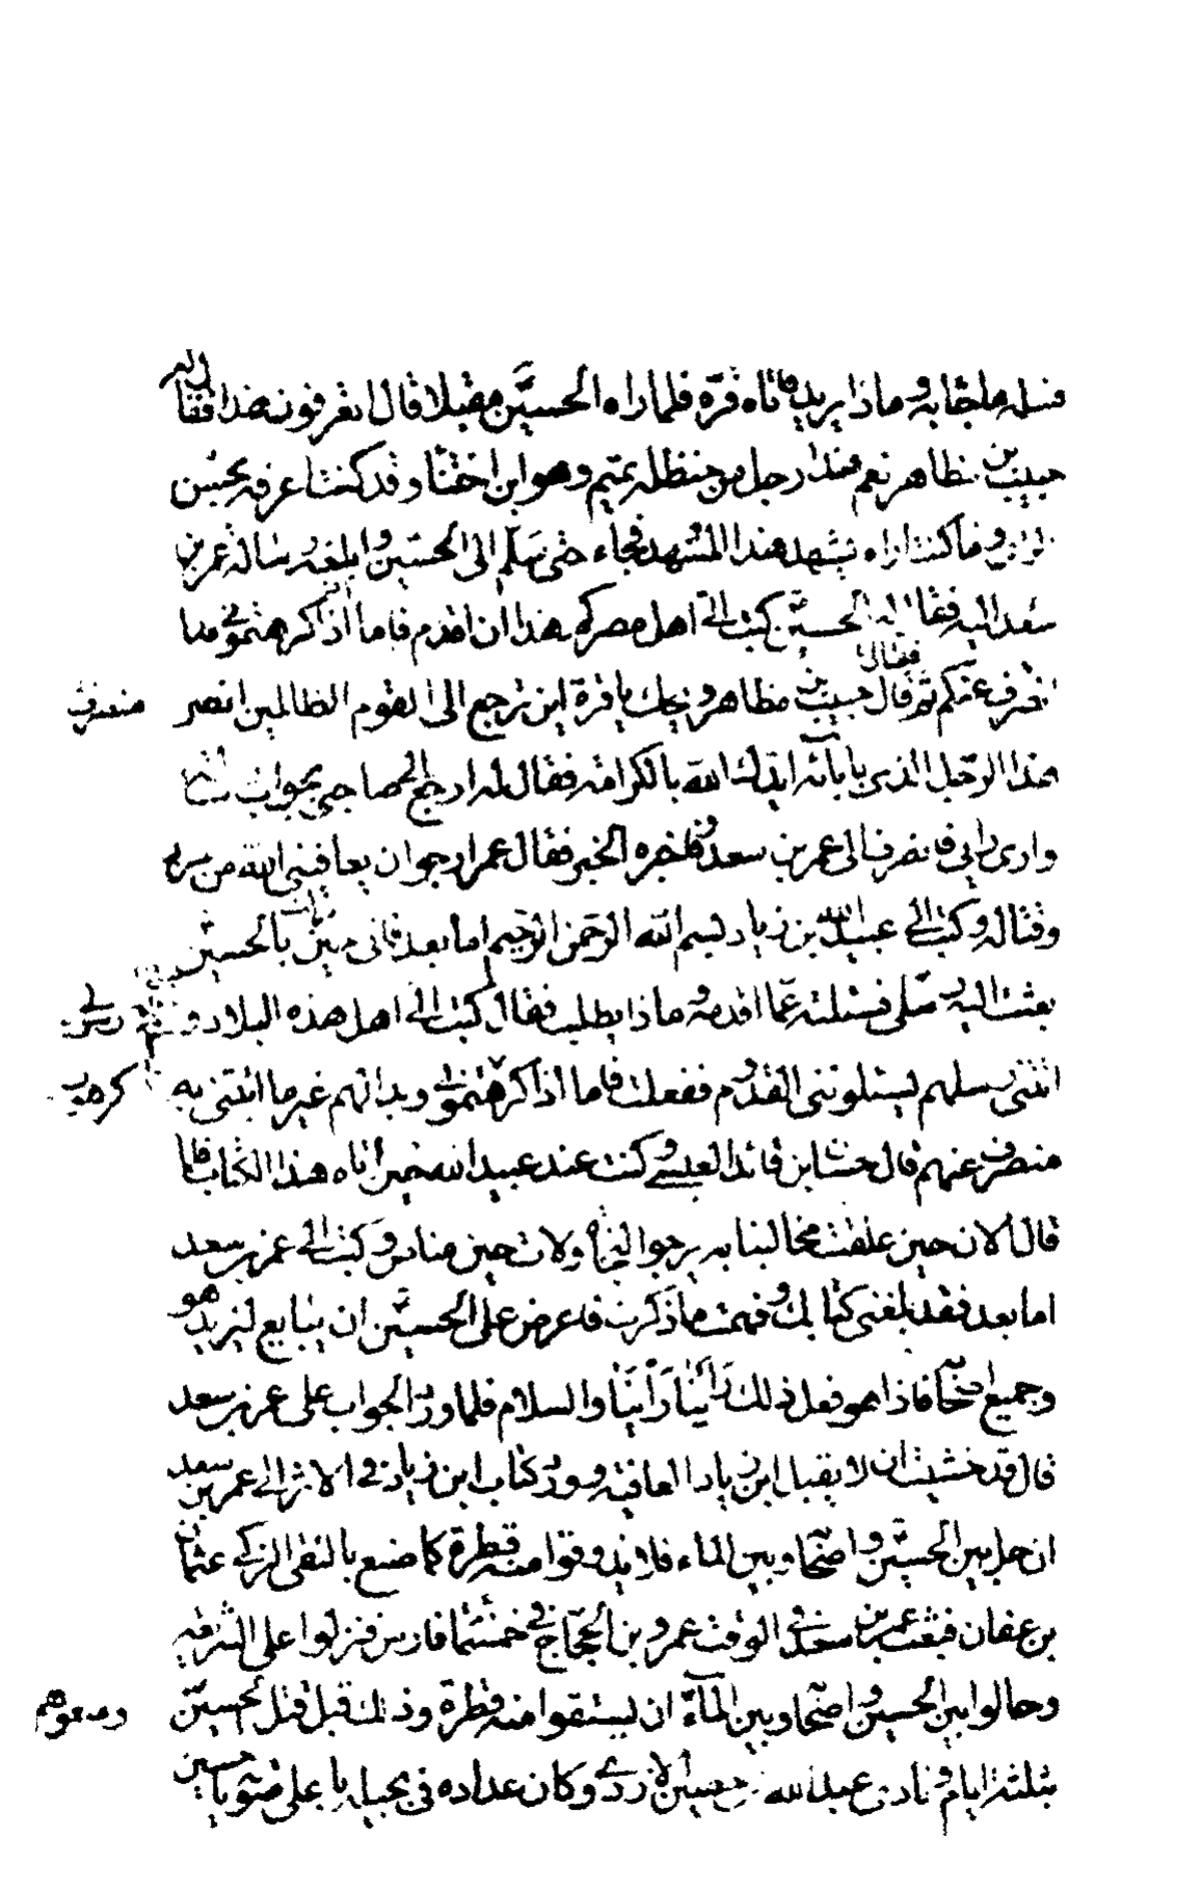 فسله ما جاء به وماذا يريد فاتاه قرة فلما راه الحسين مقبلا قال اتعرفون هذا فقال له
حبيب بن مظاهر نعم هذا رجل من حنظلة تميم وهو ابن اختنا وقد كنت اعرفه بحسن
الراي وما كنت اراه يشهد هذا المشهد فجاء حتى سلم الى الحسين وابلغه رسالة عمر بن
سعد اليه فقال له الحسين كتب الى اهل مصركم هذا ان اقدم فاما اذا كرهتموني فانا
انصرف عنكم ثم قال حبيب بن مظاهر ويحك يا قرة اين ترجع الى القوم الظالمين انصر
منصرف
فقال
هذا الرجل الذي بابائه ايدك الله بالكرامة فقال له ارجع الى صاحبي بجواب
وارى رايي فانصرف الى عمر بن سعد فاخبره الخبر فقال عمر ارجو ان يعافيني الله من حربه
وقتاله وكتب الى عبيد الله بن زياد بسم الله الرحمن الرحيم اما بعد فاني حين نزلت بالحسين
بعثت اليه رسلي فسئلته عما اقدمه وماذا يطلب فقال كتب الى اهل هذه البلاد
اتتني رسلهم يسئلونني القدوم ففعلت فاما اذا كرهتموني وبدا لهم غير ما اتتني به
منصرف عنهم قال حسان بن قائد العبسي وكنت عند عبيد الله حين اتاه هذا الكتاب فلما
قال الان حين علقت مخالبنا به يرجو النجاة ولات حين مناص وكتب الى عمر بن سعد
اما بعد فقد بلغني كتابك وفهمت ما ذكرت فاعرض على الحسين ان يبايع ليزيد هو
وجميع اصحابه فاذا هو فعل ذلك راينا راينا والسلام فلما ورد الجواب على عمر بن سعد
قال قد خشيت ان لا يقبل ابن زياد العافية وورد كتاب ابن زياد في الاثر الى عمر بن سعد
ان حل بين الحسين واصحابه وبين الماء فلا يذوقوا منه قطرة كما صنع بالتقى الزكي عثمان
بن عفان فبعث عمر بن سعد في الوقت عمرو بن الحجاج في خمسمائة فارس فنزلوا على الشريعة
وحالوا بين الحسين واصحابه وبين الماء ان يستقوا منه قطرة وذلك قبل قتل الحسين
ومنعوهم
بثلثة ايام ونادى عبد الله بن حصين الازدي وكان عداده في بجيلة باعلى صوته يا حسين